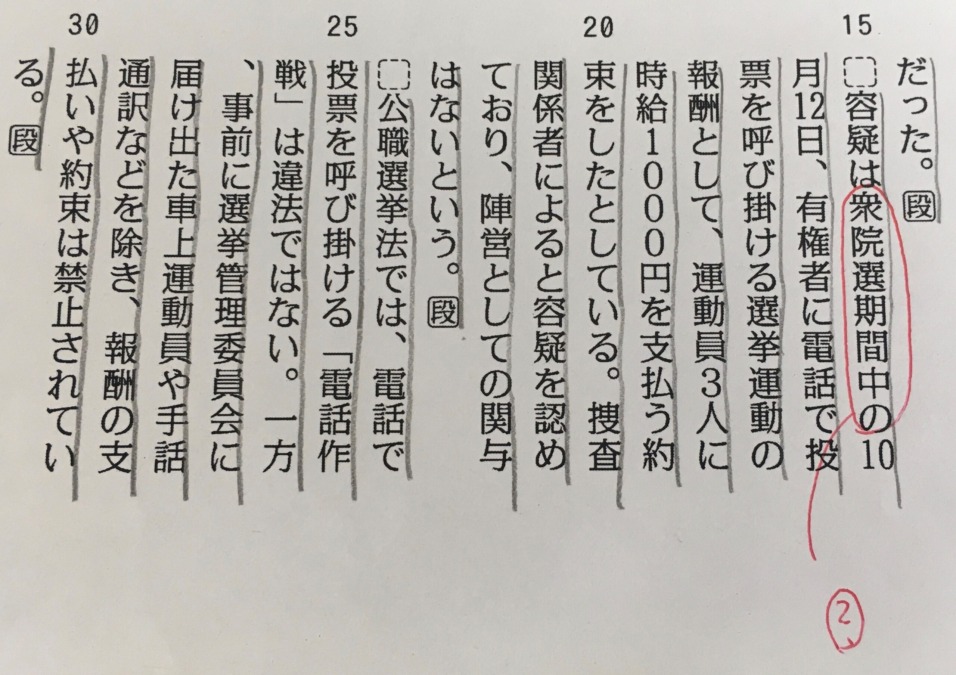 15
20
25
30
だった。段
容疑は衆院選期間中の10
月12日、有権者に電話で投
票を呼び掛ける選挙運動の
報酬として、運動員3人に
時給1000円を支払う約
束をしたとしている。捜査
関係者によると容疑を認め
ており、陣営としての関与
はないという。段
公職選挙法では、電話で
投票を呼び掛ける「電話作
戦」は違法ではない。一方
、事前に選挙管理委員会に
届け出た車上運動員や手話
通訳などを除き、報酬の支
払いや約束は禁止されてい
る。段
2